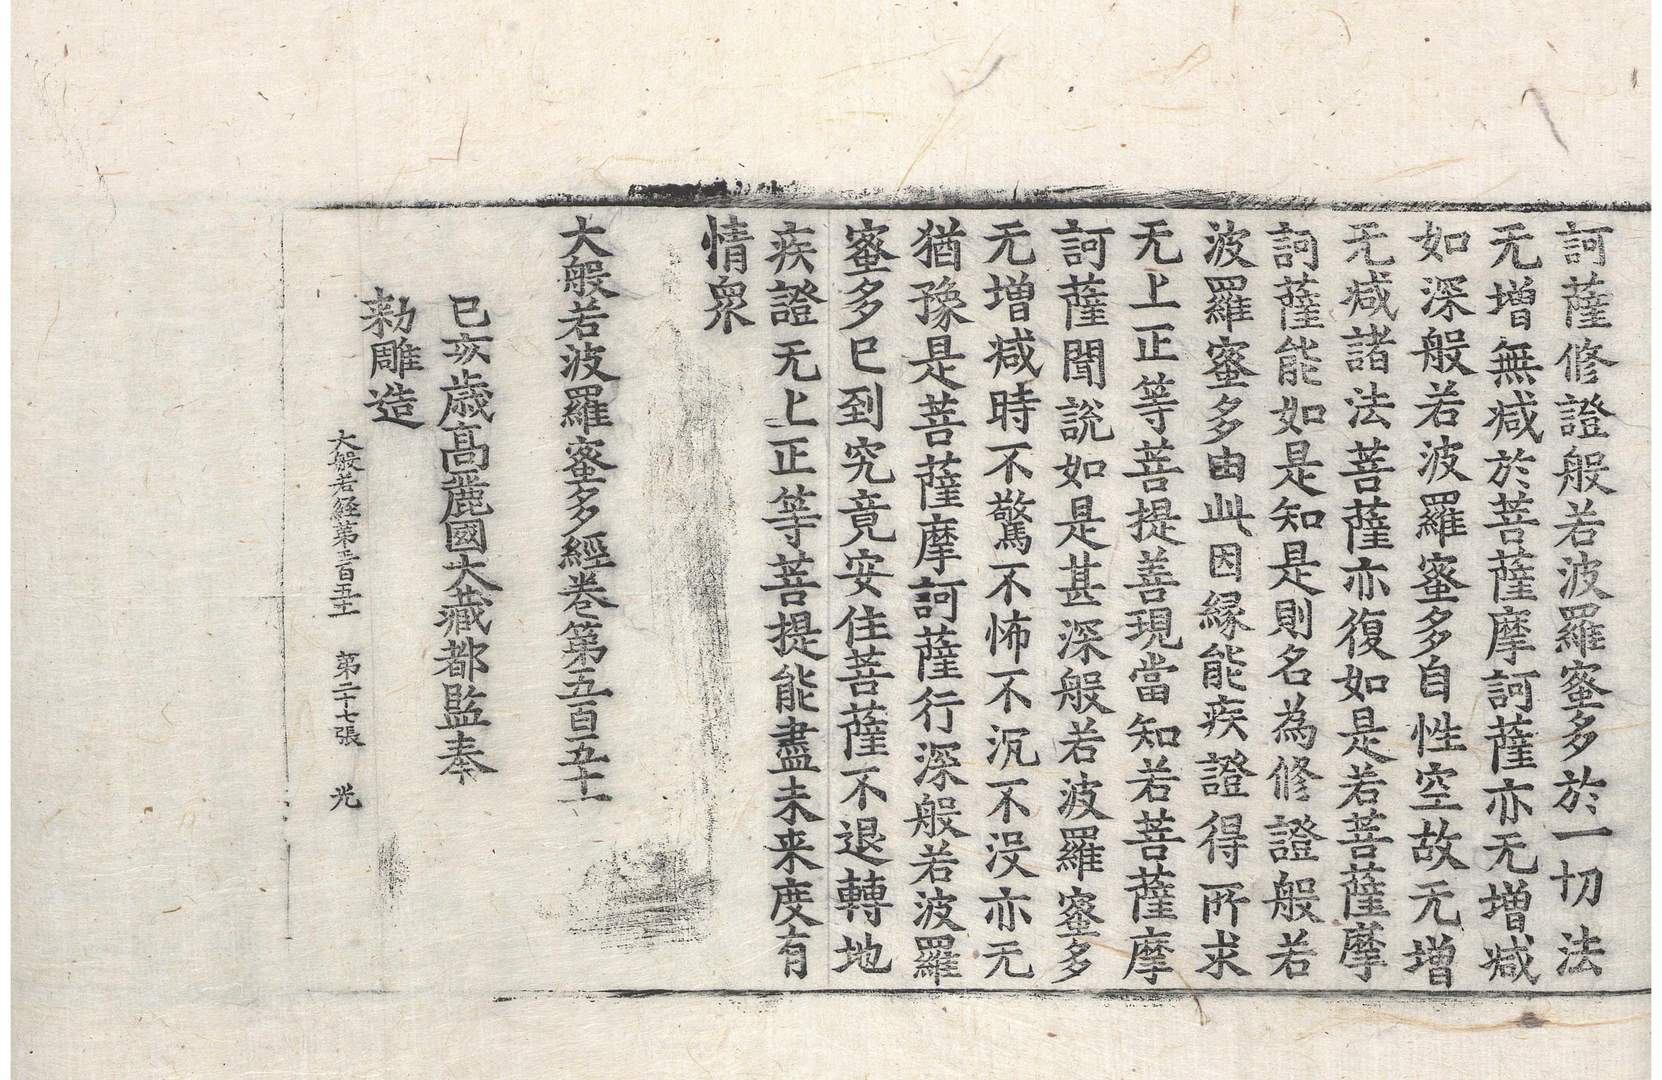 訶薩修證般若波羅蜜多於一切法
无增無減於菩薩摩訶薩亦无增減
如深般若波羅蜜多自性空故无增
无減諸法菩薩亦復如是若菩薩摩
訶薩能如是知是則名為修證般若
波羅蜜多由此因緣能疾證得所求
无上正等菩提善現當知若菩薩摩
訶薩聞說如是甚深般若波羅蜜多
无增減時不驚不怖不沉不没亦无
猶豫是菩薩摩訶薩行深般若波羅
蜜多已到究竟安住菩薩不退轉地
疾證无上正等菩提能盡未来度有
情衆
大般若波羅蜜多經卷第五百五十一
己亥歳高麗國大藏都監奉
勑雕造
大般若経第五百五十一 第二十七張 光